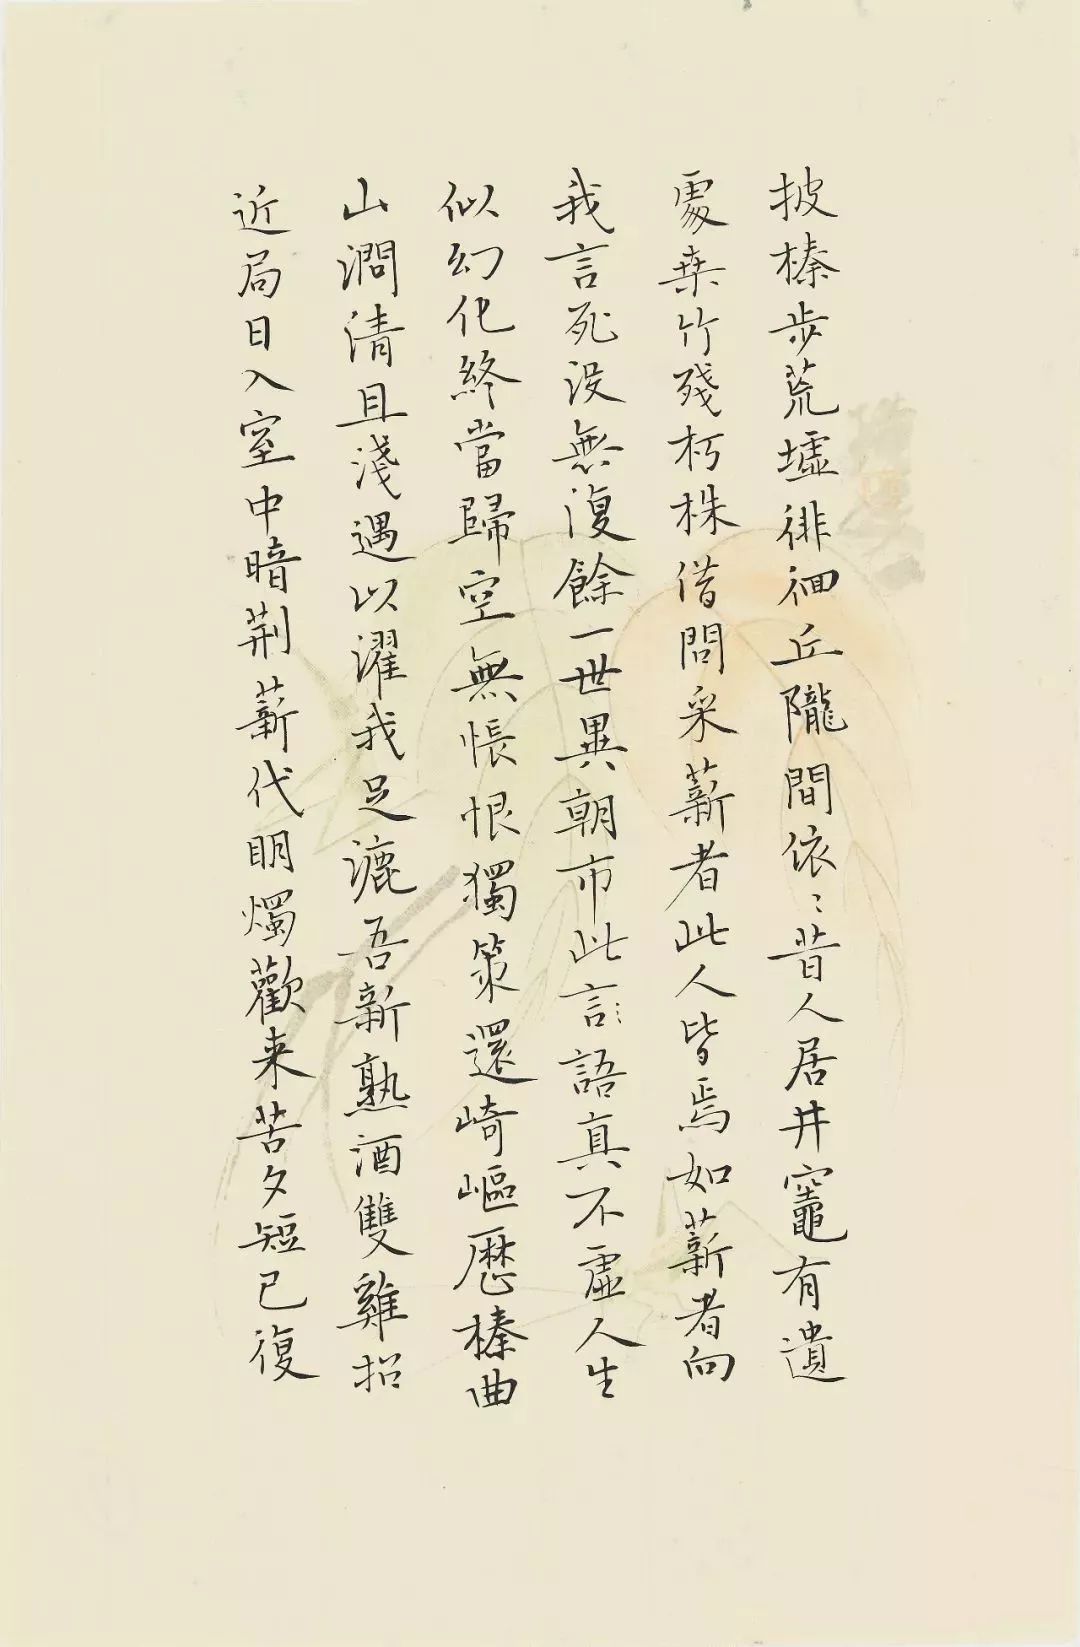 披榛步荒墟徘徊丘隴間依〻昔人居井竈有遺
處桒竹殘朽株借問采薪者此人皆焉如薪者向
我言死没無復餘一世異朝市此言〻語真不虛人生
似幻化終當歸空無悵恨獨策還崎嶇歷榛曲
山澗清且淺遇以濯我足漉吾新熟酒雙雞招
近局日入室中暗荆薪代明燭歡来苦夕短已復